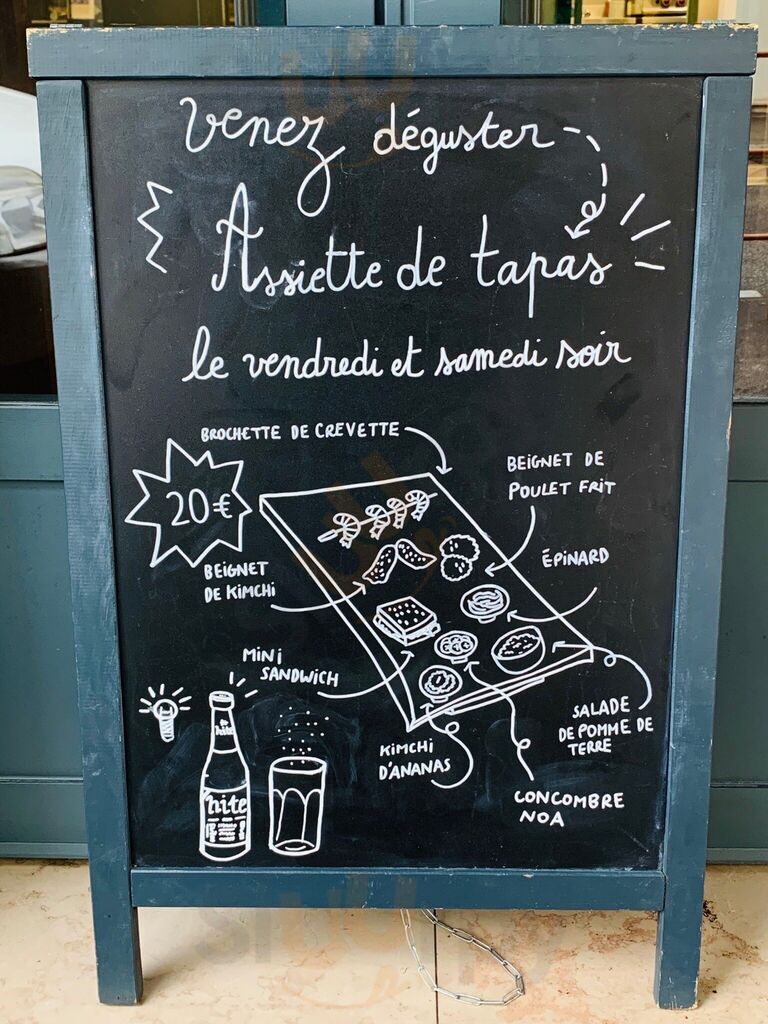 Venez déguster
Assiette de tapas
le vendredi et samedi soir
BROCHETTE DE CREVETTE
20€
BEIGNET DE
POULET FRIT
BEIGNET
DE KIMCHI
ÉPINARD
MINI
SANDWICH
SALADE
DE POMME DE
TERRE
KIMCHI
D'ANANAS
CONCOMBRE
NOA
hite
hite